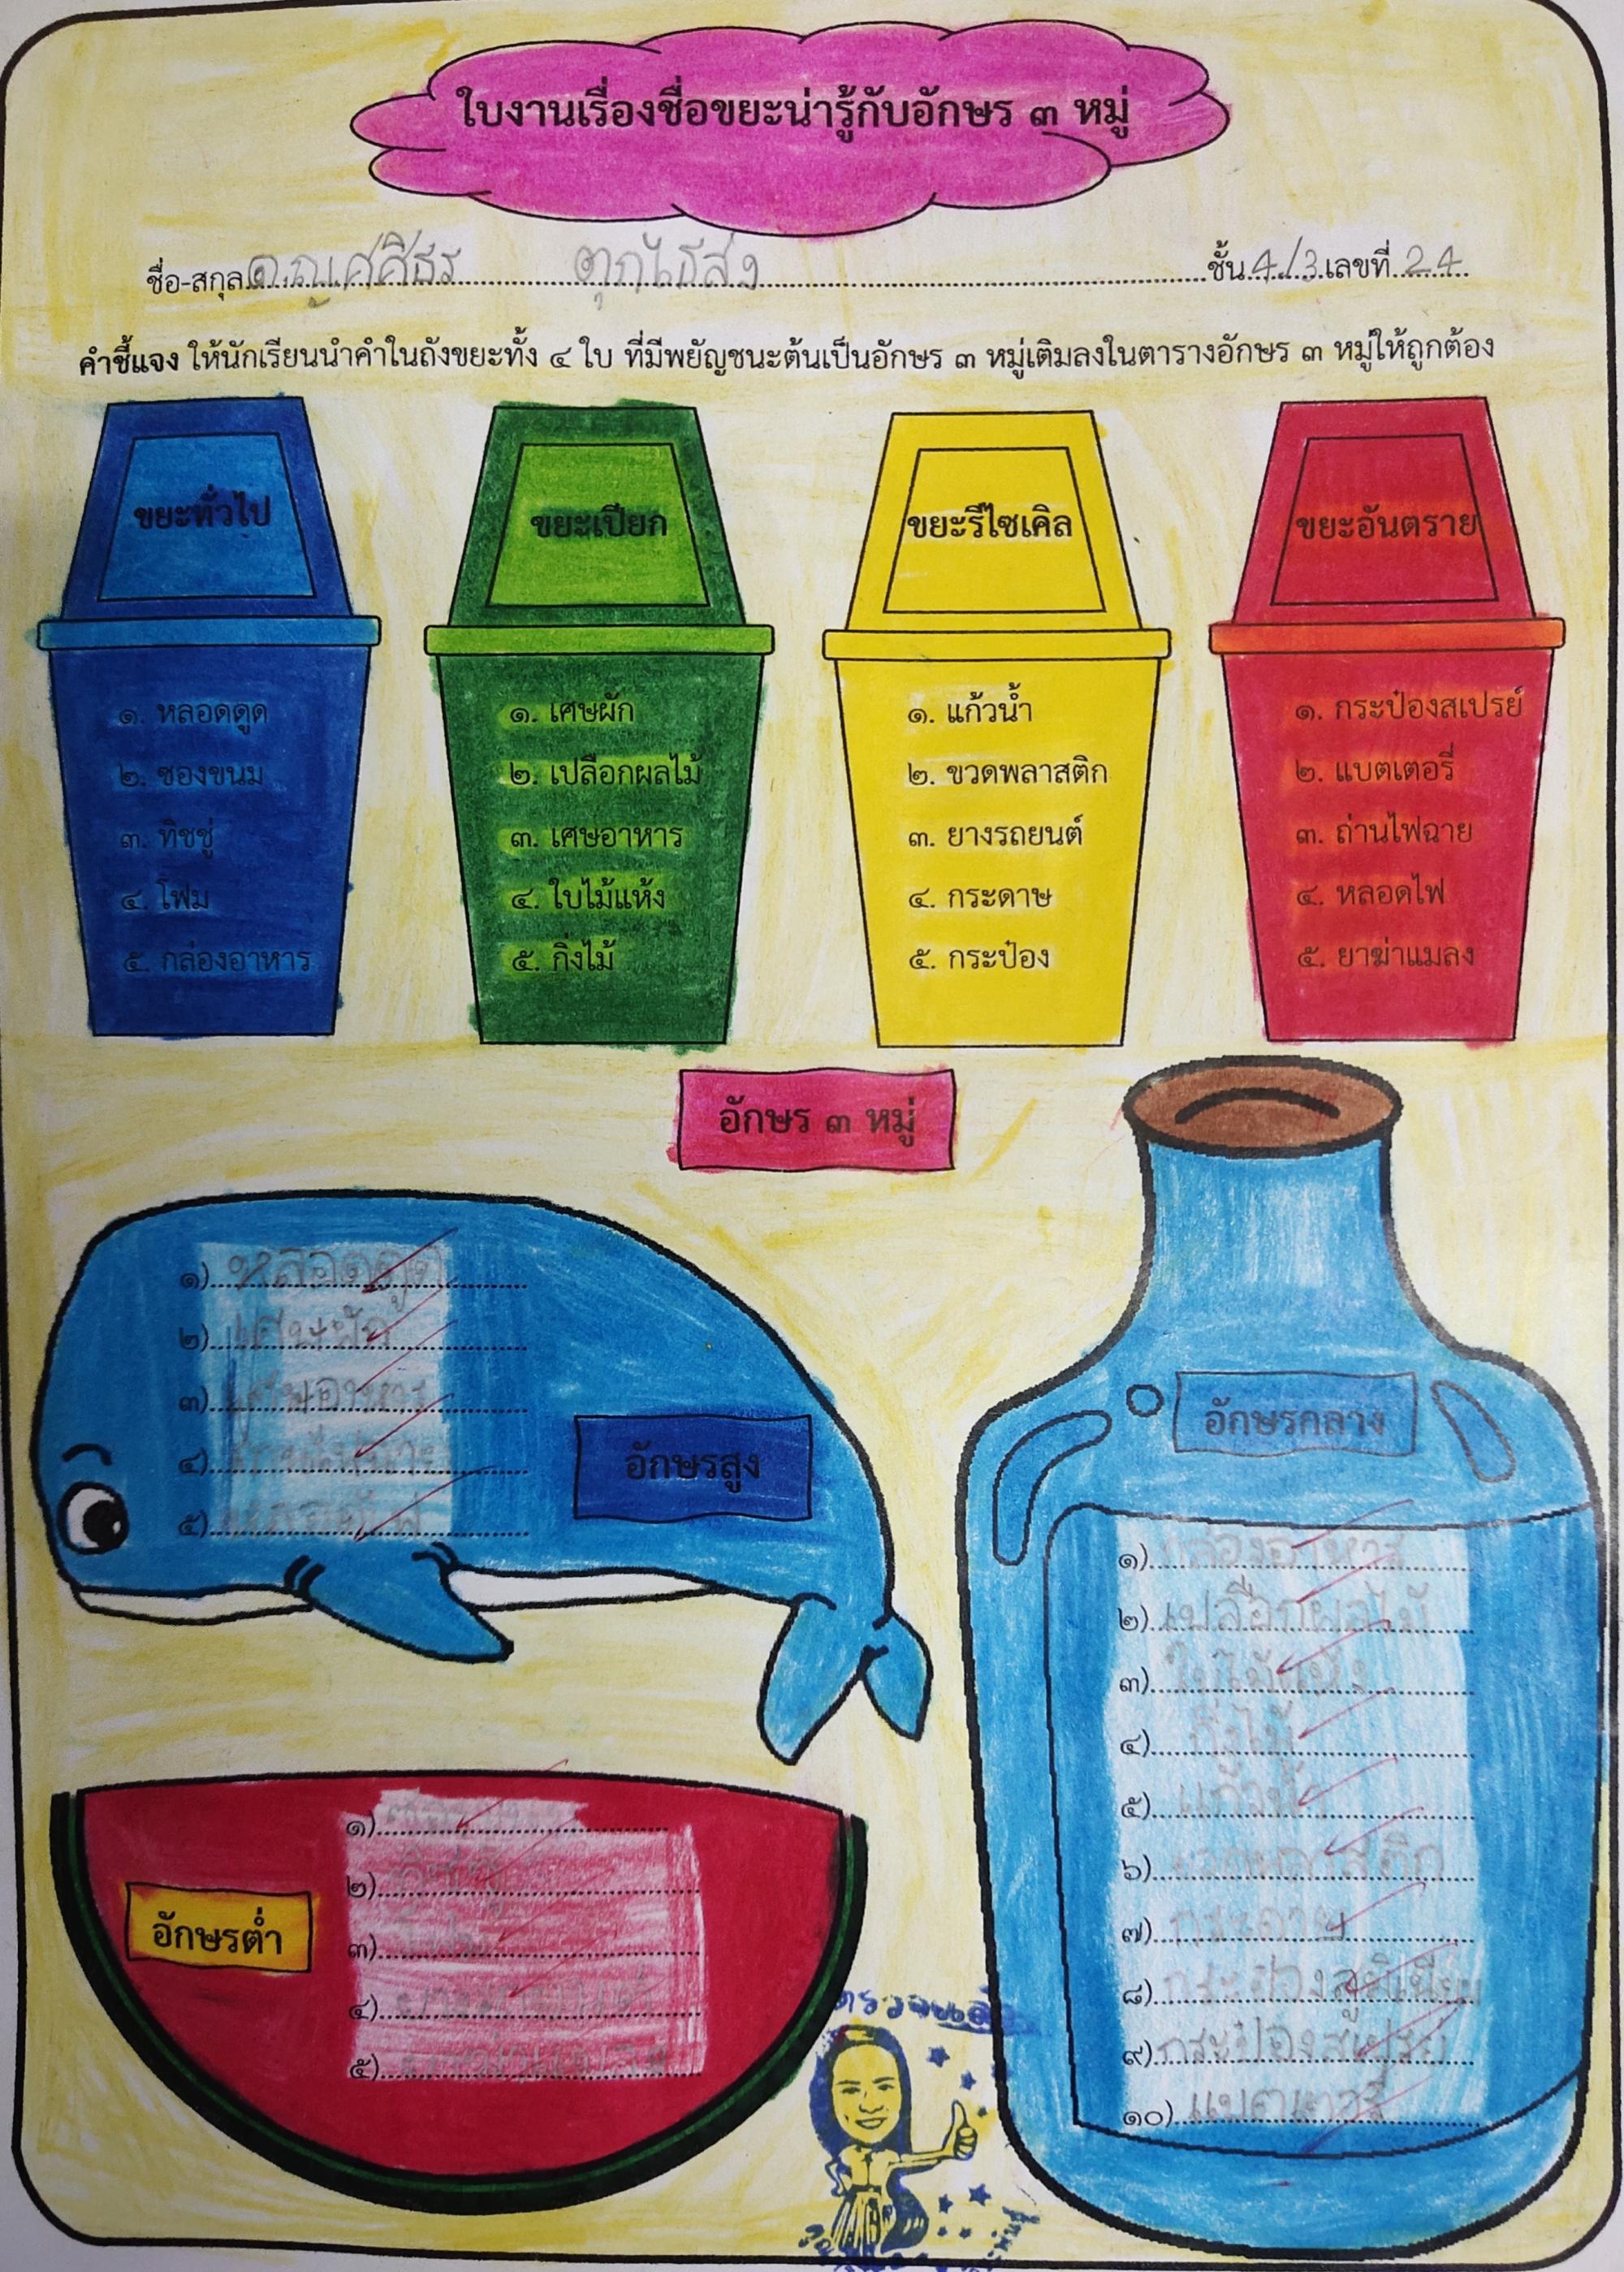 ใบงานเรื่องชื่อขยะน่ารู้กับอักษร ๓ หมู่
ชื่อ-สกุล ชั้น 4/3 เลขที่ 24
คำชี้แจง ให้นักเรียนนำคำในถังขยะทั้ง ๔ ใบ ที่มีพยัญชนะต้นเป็นอักษร ๓ หมู่เติมลงในตารางอักษร ๓ หมู่ให้ถูกต้อง
ขยะทั่วไป
๑. หลอดดูด
๒. ซองขนม
๓. ทิชชู่
๔. โฟม
๕. กล่องอาหาร
ขยะเปียก
๑. เศษผัก
๒. เปลือกผลไม้
๓. เศษอาหาร
๔. ใบไม้แห้ง
๕. กิ่งไม้
ขยะรีไซเคิล
๑. แก้วน้ำ
๒. ขวดพลาสติก
๓. ยางรถยนต์
๔. กระดาษ
๕. กระป๋อง
ขยะอันตราย
๑. กระป๋องสเปรย์
๒. แบตเตอรี่
๓. ถ่านไฟฉาย
๔. หลอดไฟ
๕. ยาฆ่าแมลง
อักษร ๓ หมู่
อักษรสูง
๑) หลอดดูด
๒) เศษผัก
๓) เศษอาหาร
๔)
๕)
อักษรกลาง
๑) กล่องอาหาร
๒) เปลือกผลไม้
๓) ใบไม้แห้ง
๔) กิ่งไม้
๕) แก้วน้ำ
๖)
๗) กระดาษ
๘) กระป๋อง
๙) กระป๋องสเปรย์
๑๐) แบตเตอรี่
อักษรต่ำ
๑)
๒) ทิชชู่
๓) โฟม
๔) ยางรถยนต์
๕)
ตรวจแล้ว